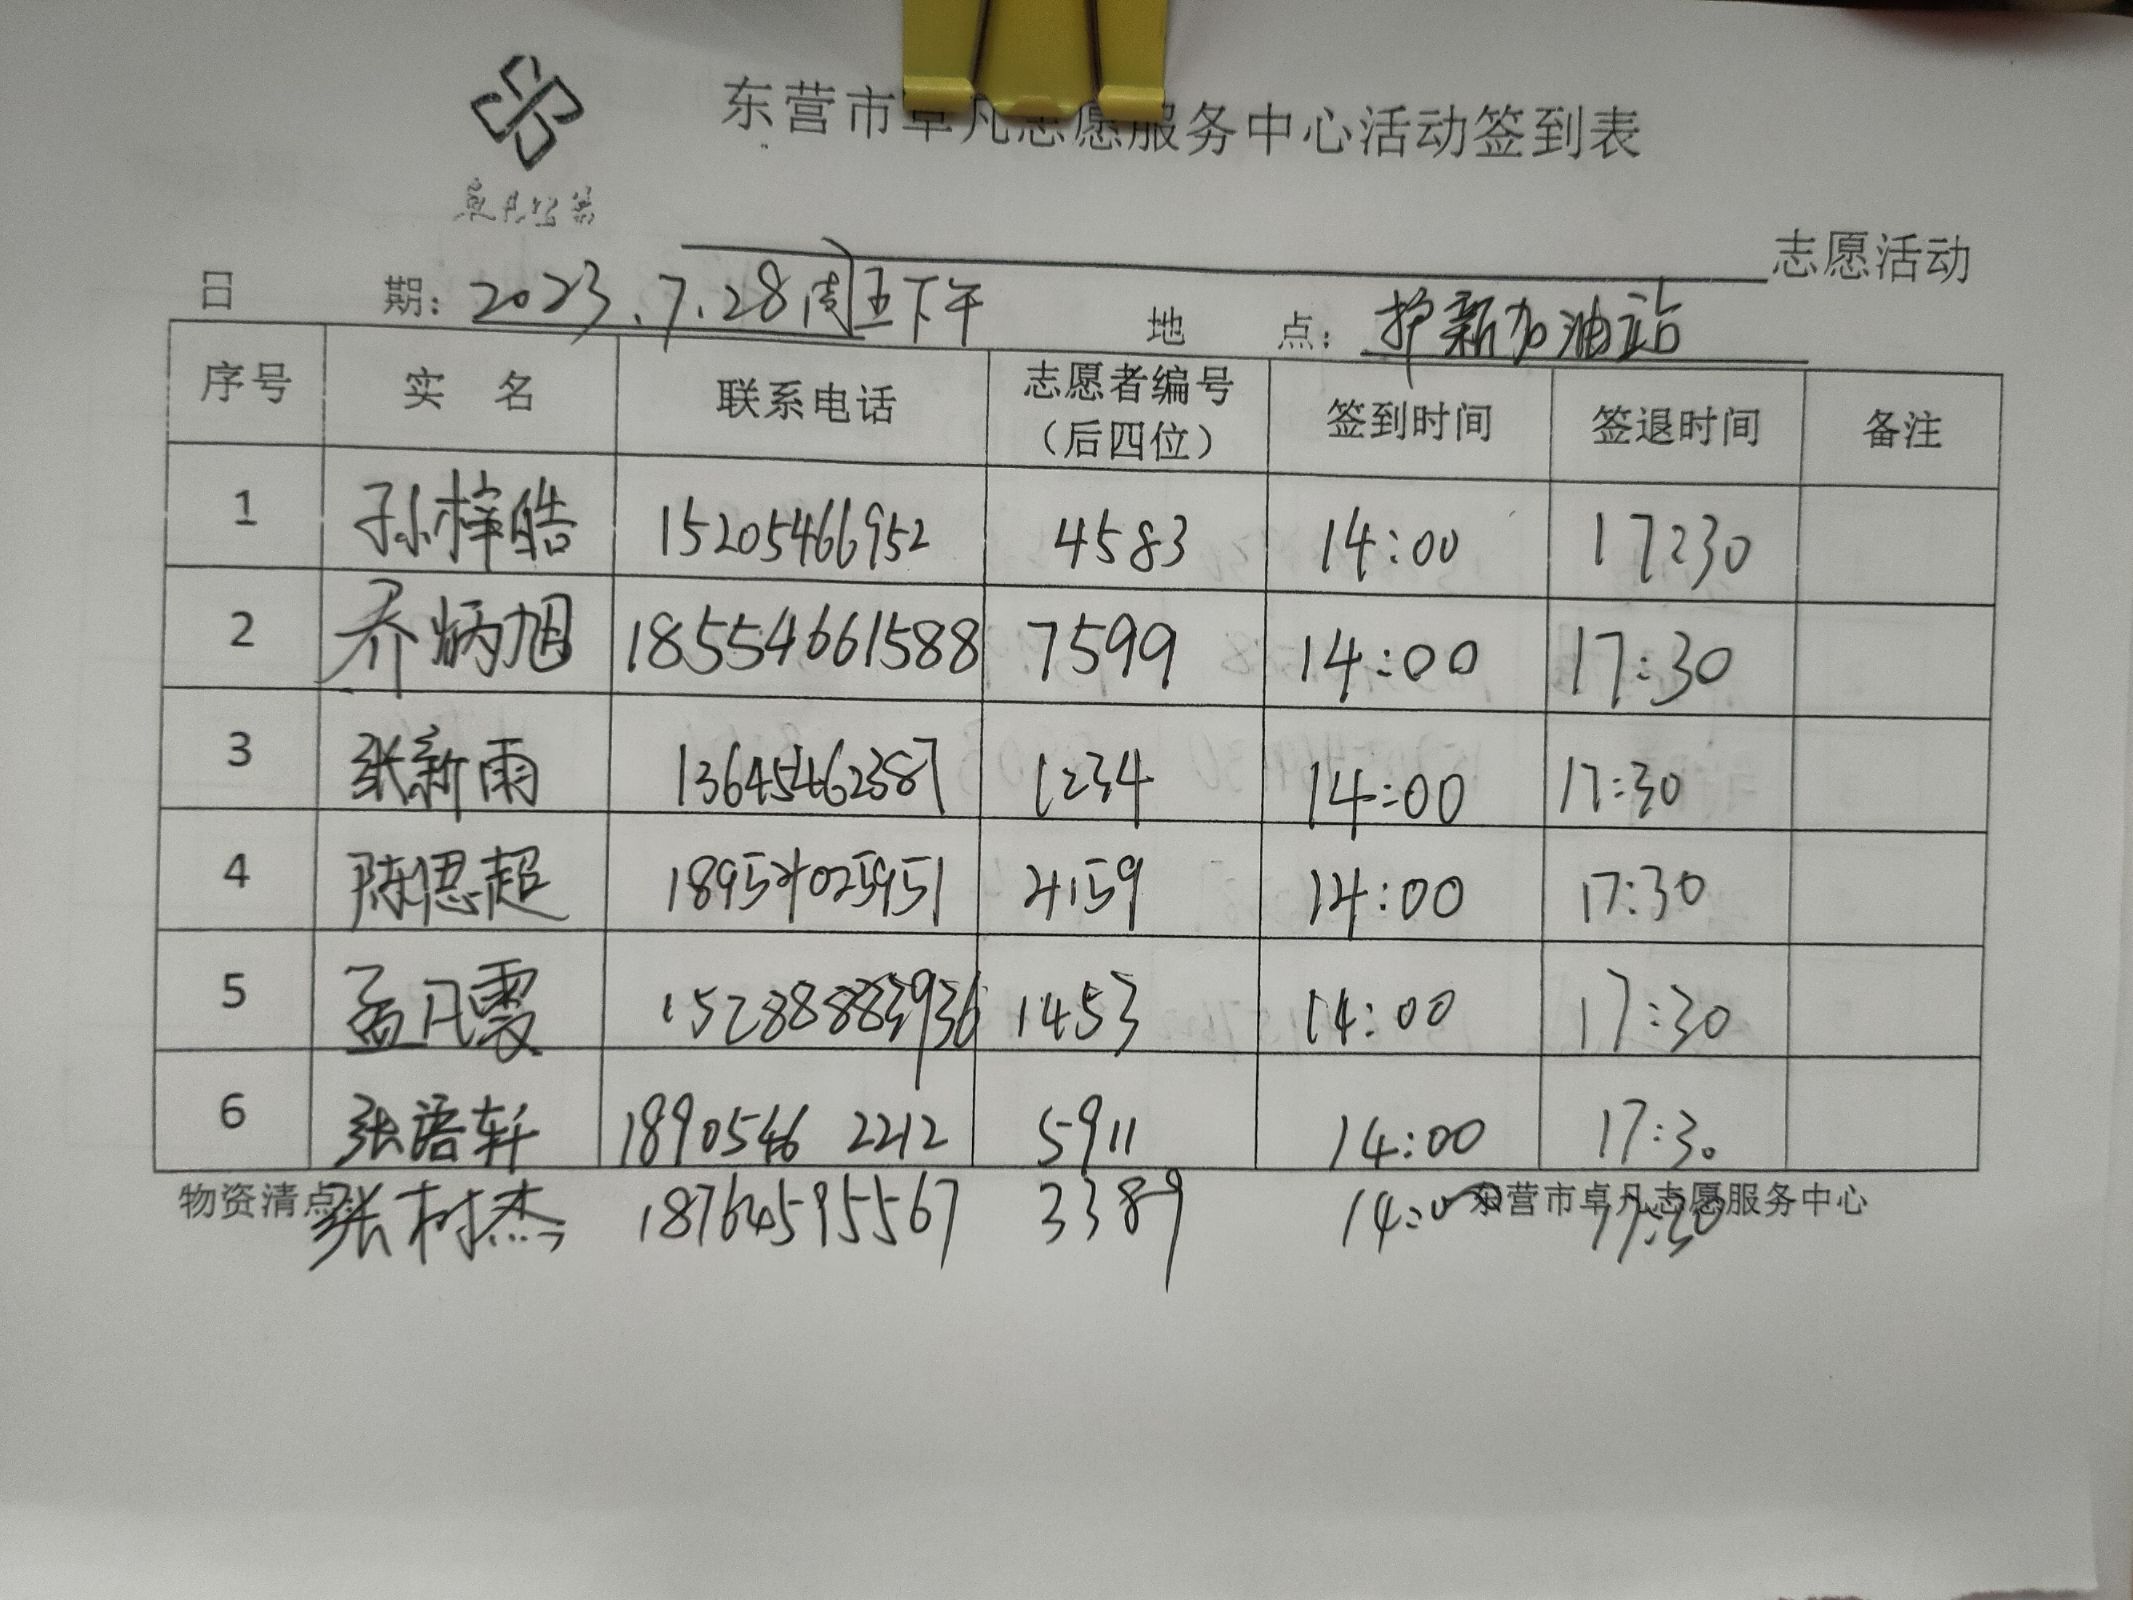 东营市卓凡志愿服务中心活动签到表
卓凡公益
志愿活动
日 期：2023.7.28周五下午 地 点：护新加油站
序号 实 名 联系电话 志愿者编号（后四位） 签到时间 签退时间 备注
1 孙梓皓 15205466952 4583 14:00 17:30
2 乔炳旭 18554661588 7599 14:00 17:30
3 张新雨 13645462387 1234 14:00 17:30
4 陈偲超 4159 14:00 17:30
5 孟凡雯 1453 14:00 17:30
6 张语轩 18905462212 5911 14:00 17:30
物资清点 东营市卓凡志愿服务中心
张树杰 18764595567 3389 14:00 17:30